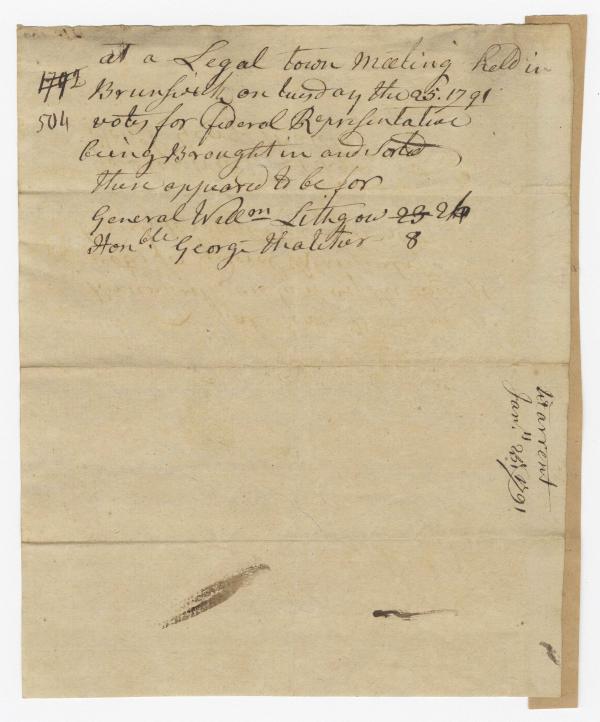 at a Legal town meeting held in
Brunswick on tuesday the 25. 1791
votes for Federal Representative
being Brought in and Sorted
there appeared to be for
General Willm Lithgow 23 24
Honble George thatcher 8
1792
504
Warrent
Janr 25 1791